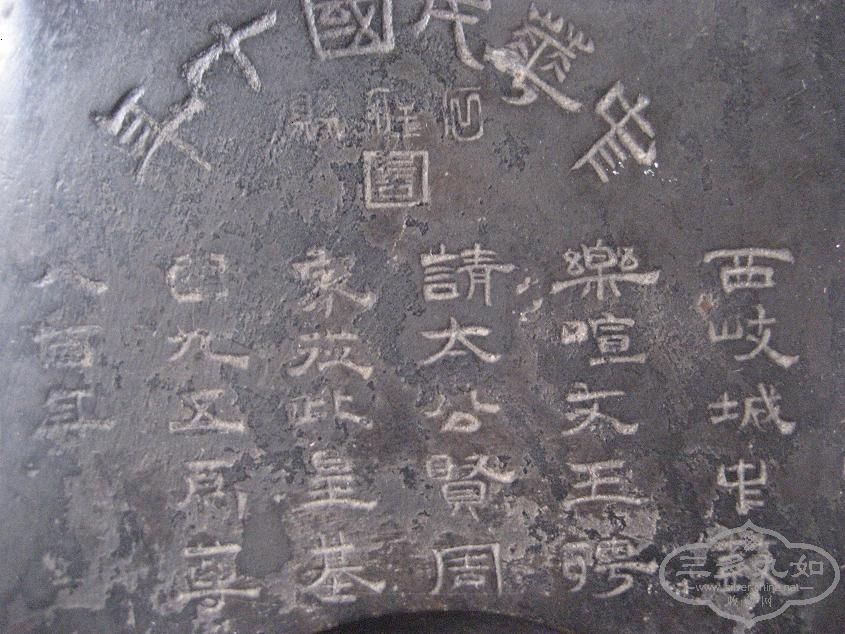 中華民國十年
縣
圖
西岐城中
樂喧文王聘
請太公賢周
家從此皇基
固九五爲尊
八百年
三多九如